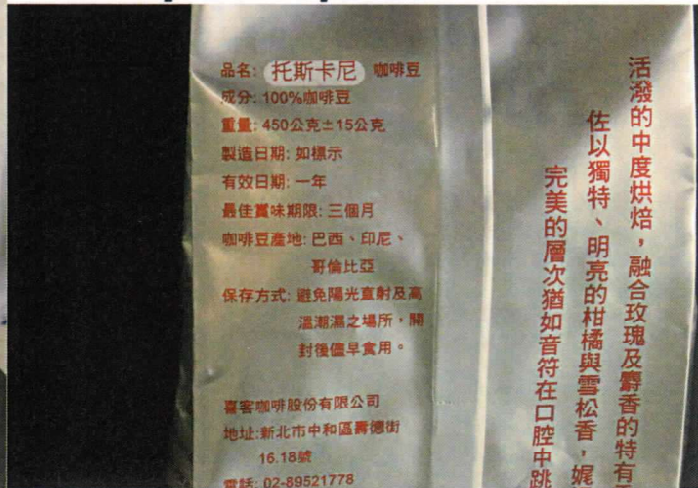 品名: 托斯卡尼 咖啡豆
成分: 100%咖啡豆
重量: 450公克±15公克
製造日期: 如標示
有效日期: 一年
最佳賞味期限: 三個月
咖啡豆產地: 巴西、印尼、
哥倫比亞
保存方式: 避免陽光直射及高
溫潮濕之場所，開
封後儘早食用。
喜客咖啡股份有限公司
地址:新北市中和區壽德街
16.18號
電話: 02-89521778
活潑的中度烘焙，融合玫瑰及麝香的特有
佐以獨特、明亮的柑橘與雪松香，娓
完美的層次猶如音符在口腔中跳